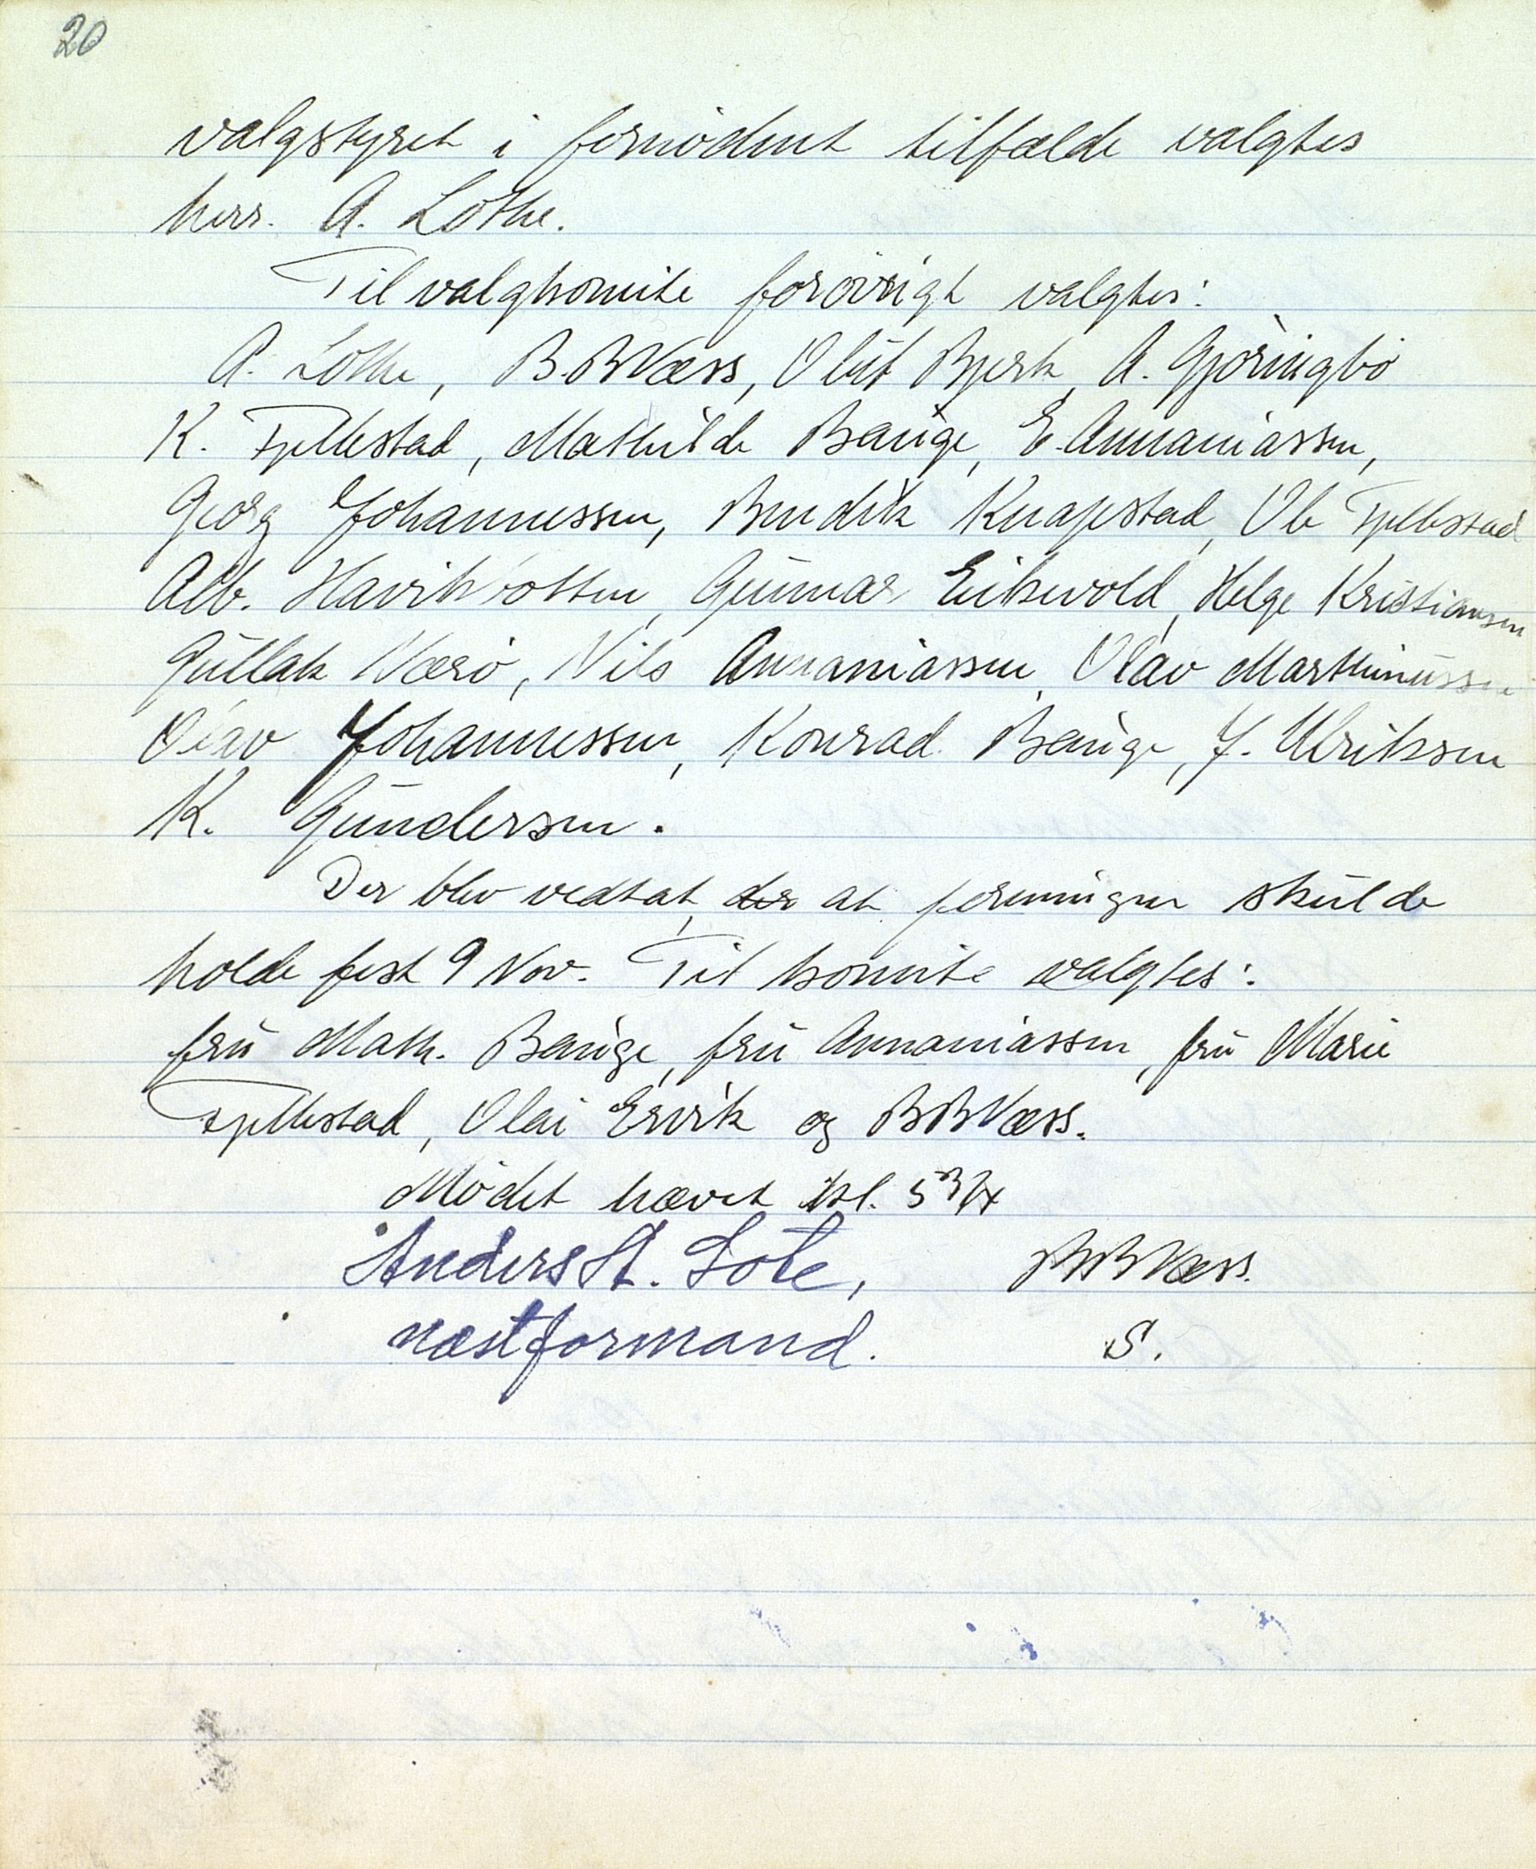 20
valgstyret i fornødent tilfælde valgtes
herr. A. Lothe.
Til valgkomite forøvrigt valgtes:
A. Lothe, B.B Næss, Oluf Bjerk, A. Gjøringbø
K. Fjellestad, Mathilde Bauge, E. Annaniassen,
Georg Johannessen, Bendik Knapstad, Ole Fjellestad
Alb. Havikbotten, Gunnar Eikevold, Helge Kristiansen
Gullak Nærø, Nils Annaniassen, Olav Marthinussen
Olav Johannessen, Konrad Bauge, J. Ulriksen
K. Gundersen.
Der blev vedtat, der at foreningen skulde
holde fest 9 Nov. Til komite valgtes:
fru Math. Bauge, fru Annaniassen, fru Marie
Fjellestad, Olai Ervik og B B Næss.
Mødet hævet kl. 5 3/4
Anders A. Lote, B B Næss.
næstformand. S.